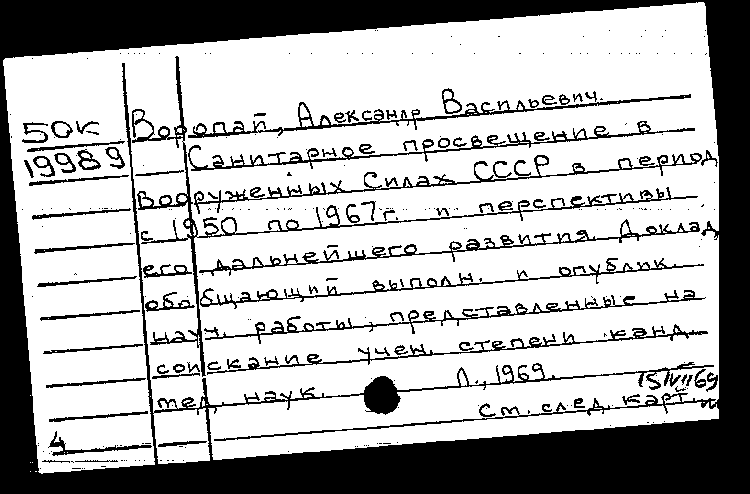 50к Воропай, Александр Васильевич.
19989 Санитарное просвещение в
Вооруженных Силах СССР в период
с 1950 по 1967 г. и перспективы
его дальнейшего развития. Доклад,
обобщающий выполн. и опублик.
науч. работы, представленные на
соискание учен. степени канд.
мед. наук. Л., 1969.
См. след. карт.
4